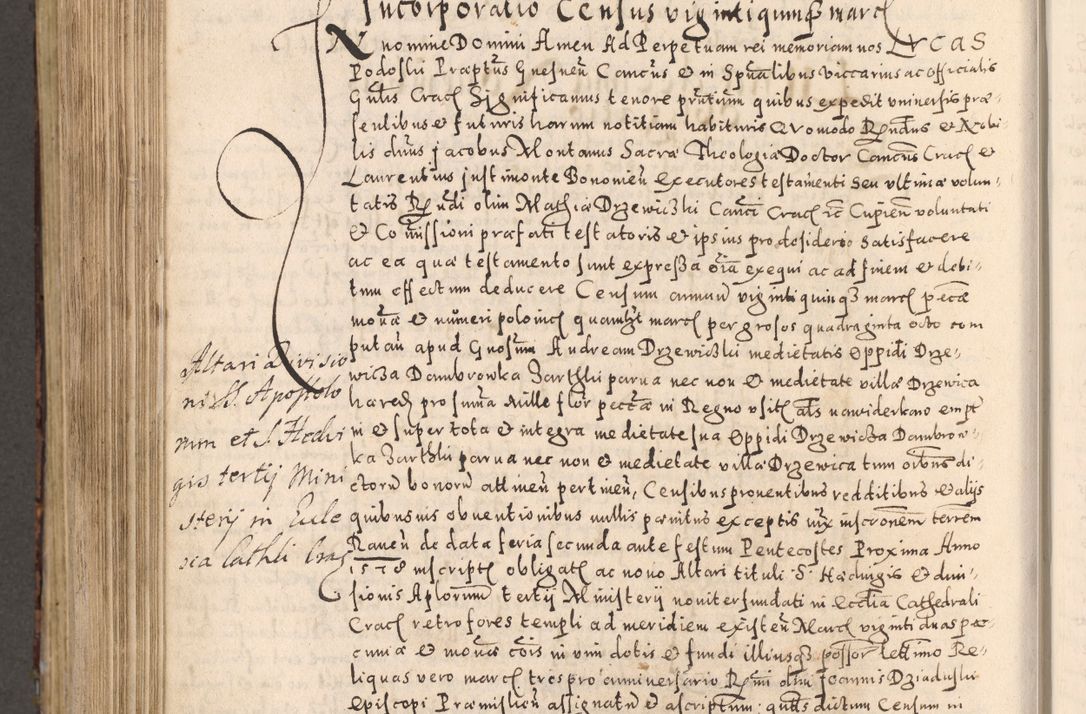 Incorporatio Census vigintiquinq3 marc
In nomine Domini Amen Ad Perpetuam rei memoriam nos LVCAS
Podoskii Præptus Gnesneñ Cancus et in Spualibus Viccarius ac officialis
Gnlis Crac Significamus tenore pntium quibus expedit universis præ-
sentibus et futuris harum notitiam habituris Quomodo Rndus et Nobi-
lis dnus Jacobus Montanus Sacræ Theologiæ Doctor Cancus Crac et
Laurentius justimonte Bononieñ executores testamenti seu ultimæ volun-
tatis Rndi olim Mathiæ Drzewiczkii Canci Crac Cupieñ voluntati
et Comissioni præfati testatoris et ipsius pro desiderio satisfacere
ac ea quæ testamento sunt expressa oia exequi ac ad finem et debi-
tum effectum deducere Censum annuu viginti quinq3 marc pecæ
monæ et numeri polonic quamlibet marc per grosos quadraginta octo com
putañ apud Gnosum Andream Drzewiczkii medietatis Oppidi Drze-
wicza Dambrowka Zarthki parua nec non et medietate villæ Drzewica
hæred pro suma Mille flor peccæ in Regno usit als nawiderkano empt
in et super tota et integra medietate sua Oppidi Drzewicza Dambrow-
ka Zarthki parua nec non et medietate villæ Drzewica tum oibus di-
ctoru bonoru attineñ pertineñ, Censibus prouentibus redditibus et alijs
quibusuis obuentionibus nullis pænitus exceptis iux inscronem terrem
Raueñ de data feria secunda ante festum Pentecostes Proxima Anno
1578 inscript obligat ac nouo Altari tituli S. Hæduigis et diui-
sionis Aplorum tertij Ministerij nouiter fundati in Ecclia Cathedrali
Crac retro fores templi ad meridiem existeñ Marc viginti duas pe-
cuniæ et monæ cois in vim dotis et fundi illiusq3 possor lettimo Re-
liquas vero marc tres pro anniuersario Rmi olim Joannis Dziaduskii
Episcopi Præmislieñ assignatu et ascriptum: qutus dictum Censum in
Altari Divisio
nis S. Apostolo
rum et S. Hedvi
gis tertij Mini
sterij in Eccle
sia Cathli Crac